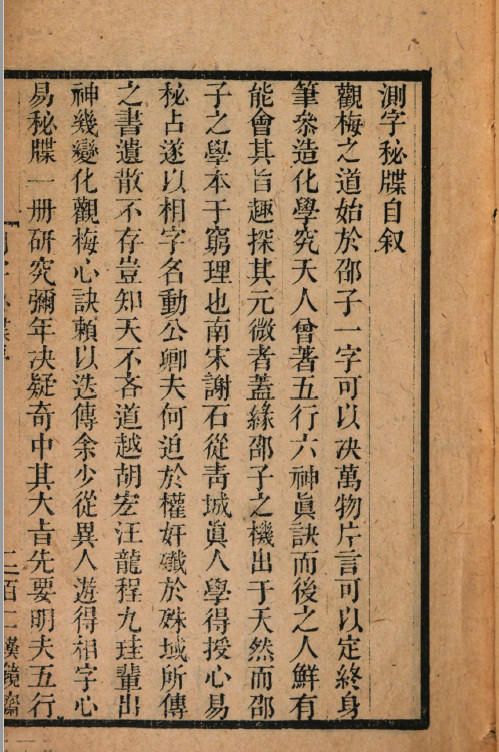 測字秘牒自叙
觀梅之道始於邵子一字可以决萬物片言可以定終身
筆叅造化學究天人曾著五行六神眞訣而後之人鮮有
能會其旨趣探其元微者蓋緣邵子之機出于天然而邵
子之學本于窮理也南宋謝石從靑城眞人學得授心易
秘占遂以相字名動公卿夫何迫於權奸殱於殊域所傳
之書遺散不存豈知天不吝道越胡宏汪龍程九珪輩出
神幾變化觀梅心訣賴以迭傳余少從異人遊得相字心
易秘牒一册研究彌年决疑奇中其大旨先要明夫五行
二百二漢鏡齋